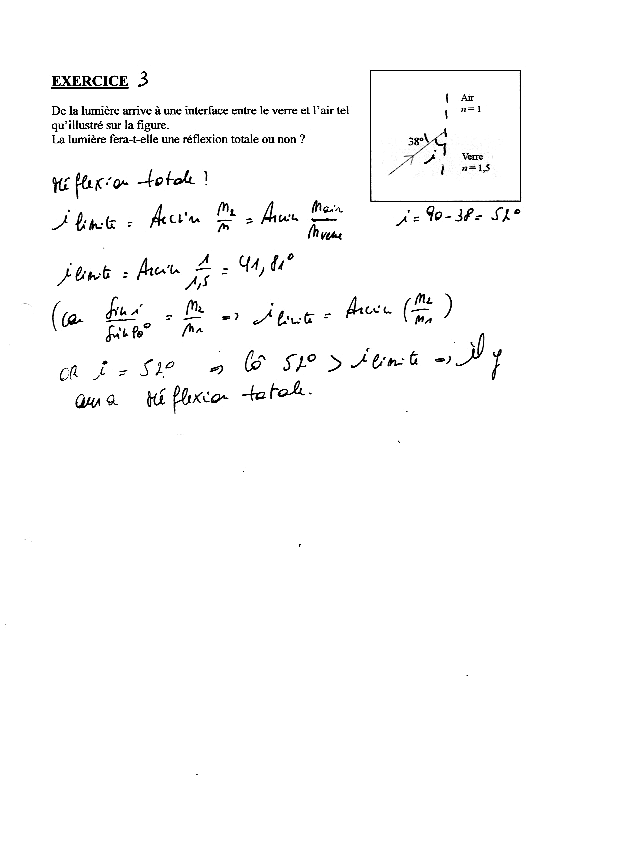 EXERCICE 3
De la lumière arrive à une interface entre le verre et l'air tel
qu'illustré sur la figure.
La lumière fera-t-elle une réflexion totale ou non ?
Air
n = 1
38°
i
Verre
n = 1,5
i = 90 - 38 = 52°
réflexion totale !
i limite = Arcsin n2/n1 = Arcsin nair/nverre
i limite = Arcsin 1/1,5 = 41,81°
(car sin i/sin 90° = n2/n1 => i limite = Arcsin (n2/n1)
OR i = 52° => 52° > i limite => il y
aura réflexion totale.